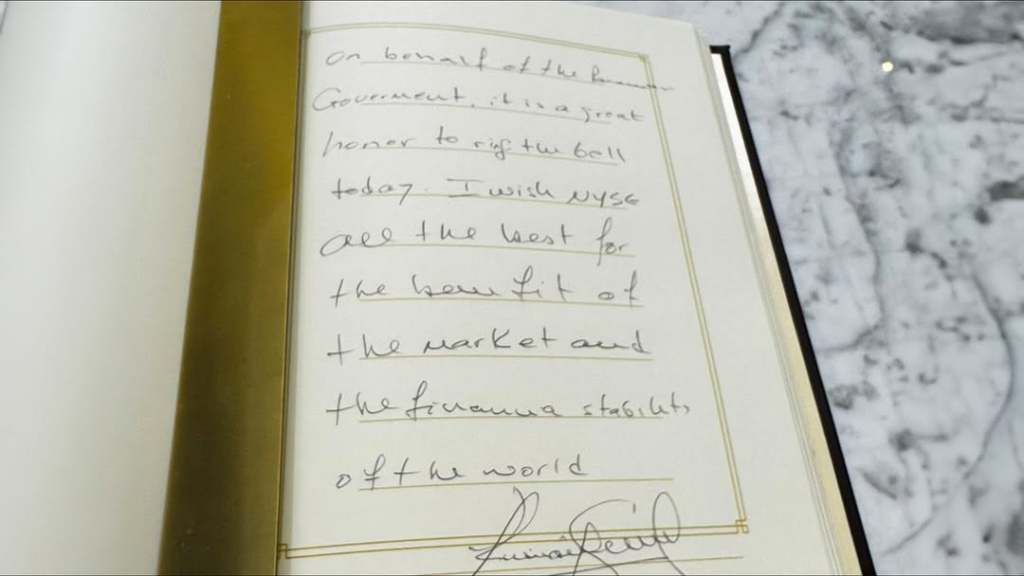 on behalf of the
Goverment, it is a great
honor to rig the bell
today. I wish NYSE
all the best for
the benefit of
the market and
the stability
of the world